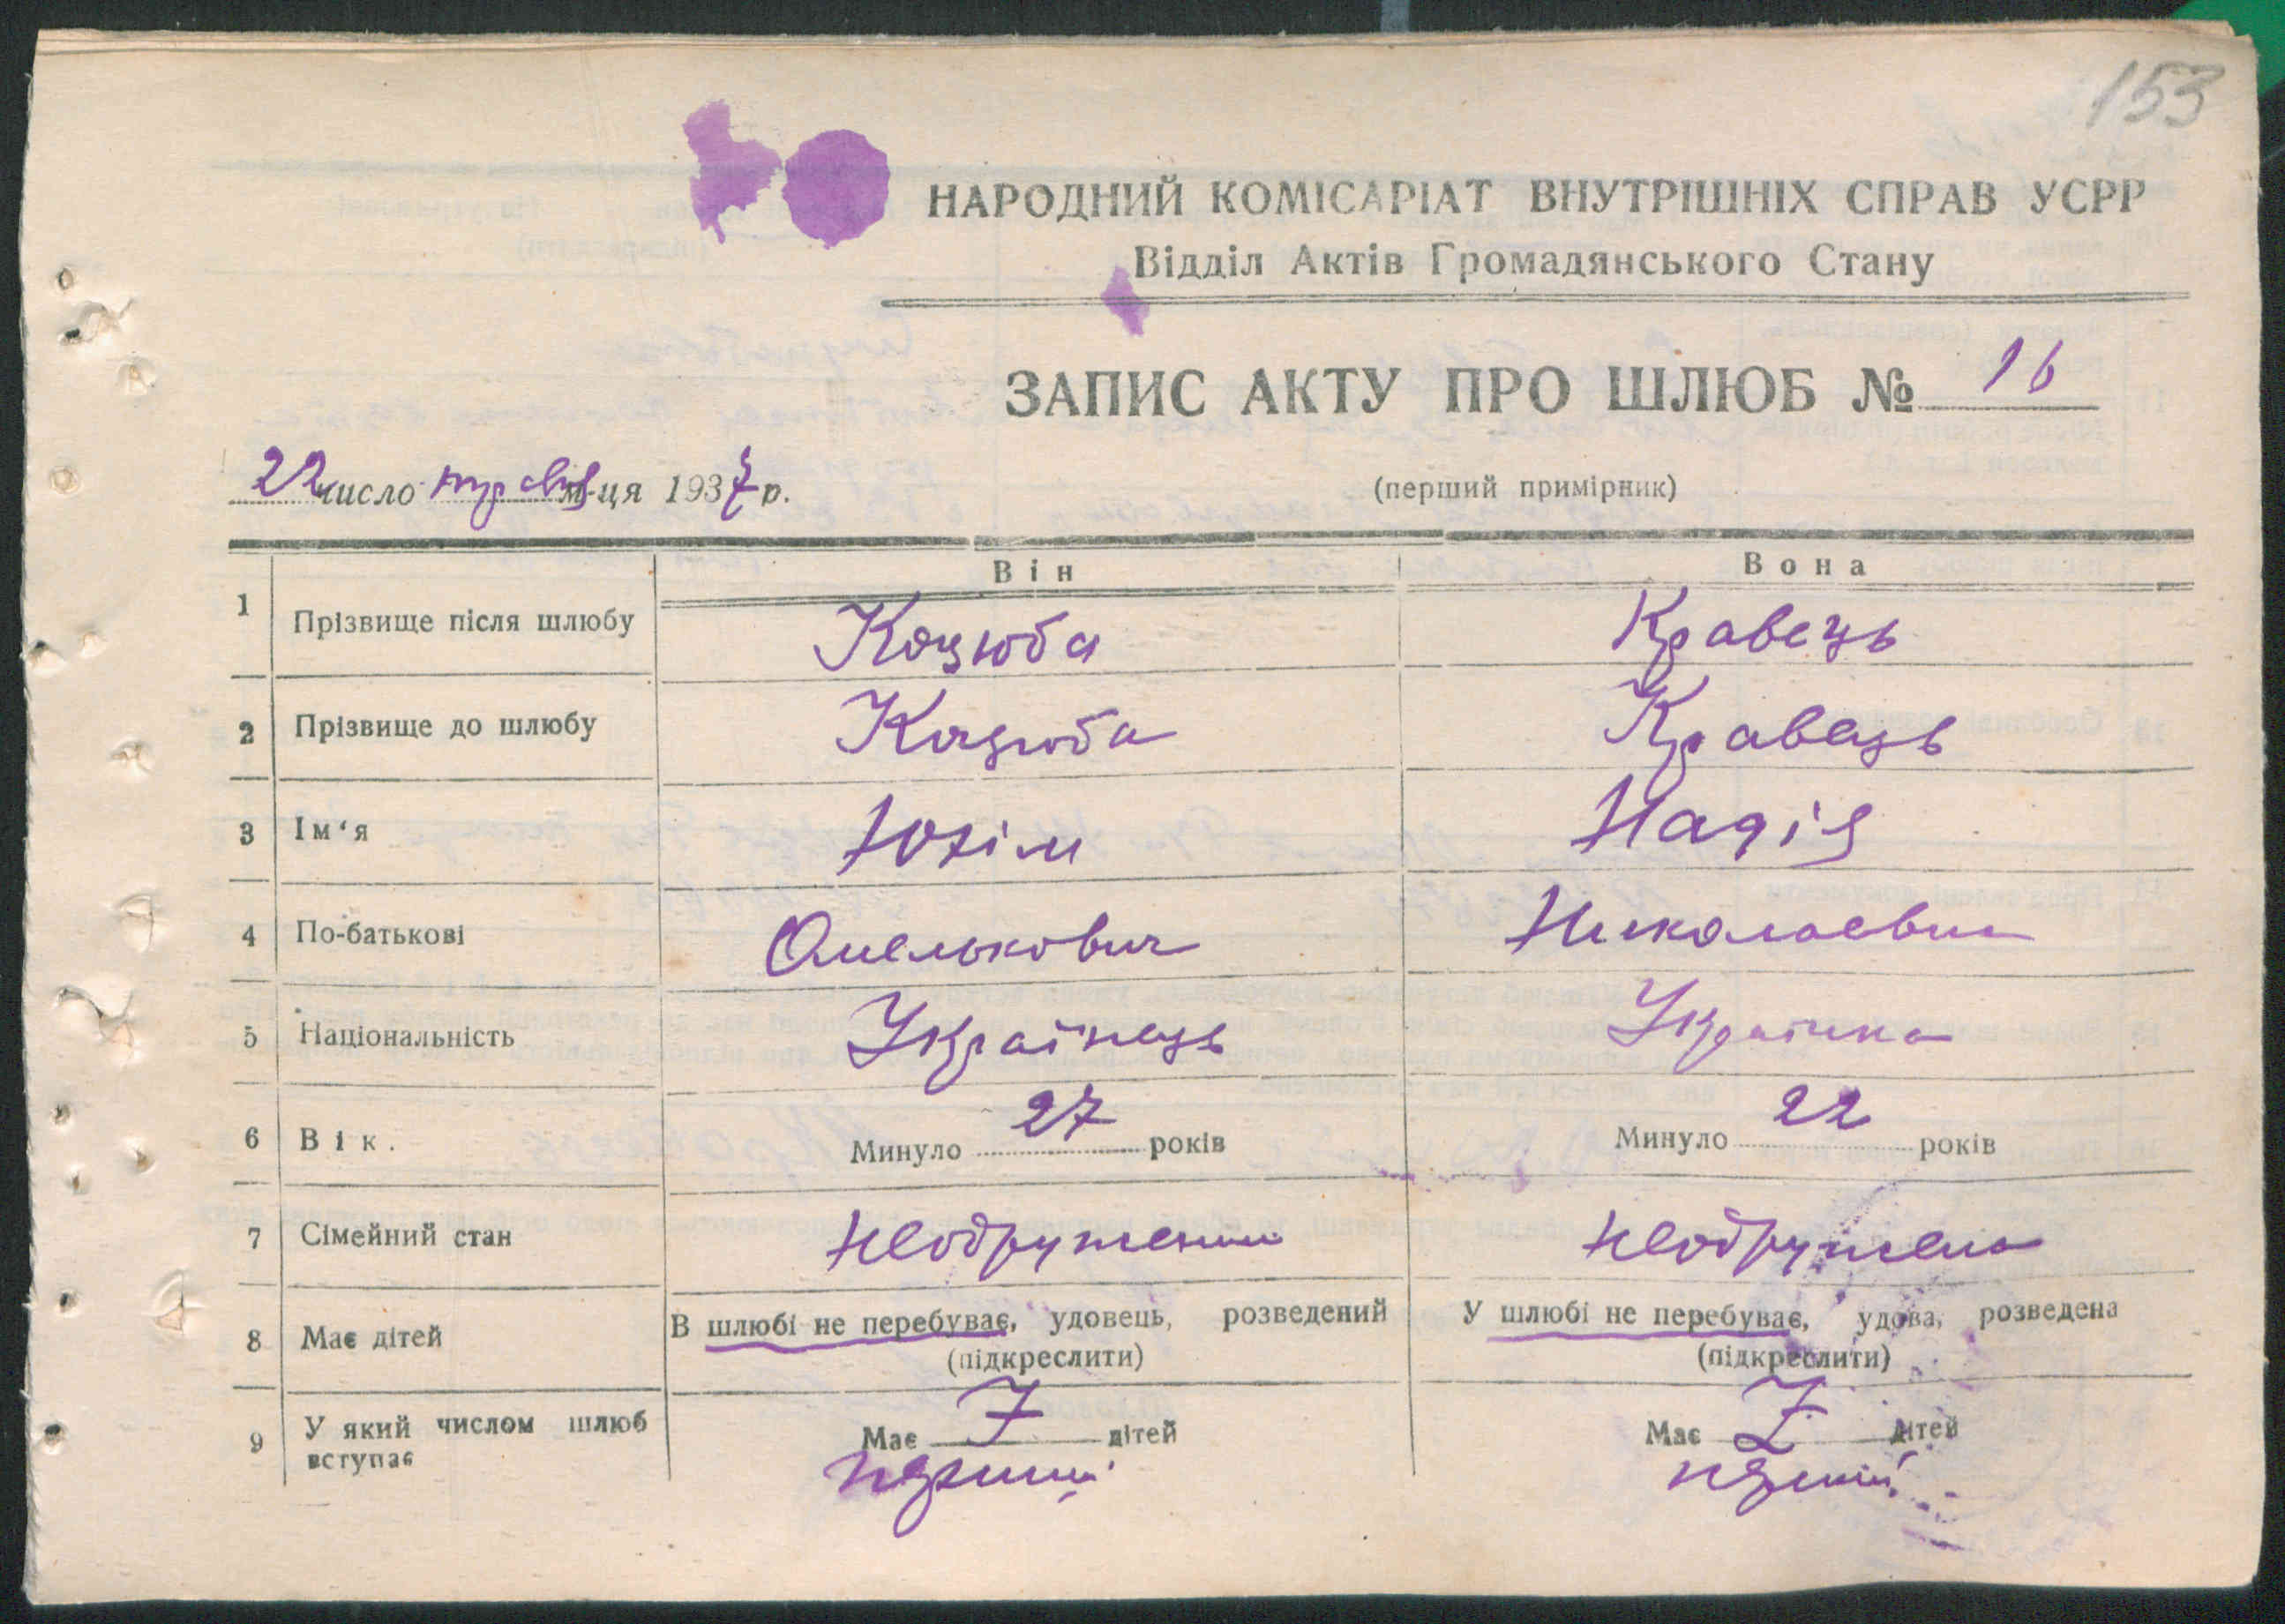 153
НАРОДНИЙ КОМІСАРІАТ ВНУТРІШНІХ СПРАВ УСРР
Відділ Актів Громадянського Стану
ЗАПИС АКТУ ПРО ШЛЮБ № 16
22 число травня м-ця 1937 р.
(перший примірник)
Він Вона
1 Прізвище після шлюбу Коцюба Кравець
2 Прізвище до шлюбу Коцюба Кравець
3 Ім‘я Юхім Надія
4 По-батькові Омелькович Николаевна
5 Національність Українець Українка
6 Вік. Минуло 27 років Минуло 22 років
7 Сімейний стан неодружений неодружена
8 Має дітей В шлюбі не перебуває, удовець, розведений У шлюбі не перебуває, удова, розведена
(підкреслити) (підкреслити)
9 У який числом шлюб вступає Має дітей Має дітей
перший перший